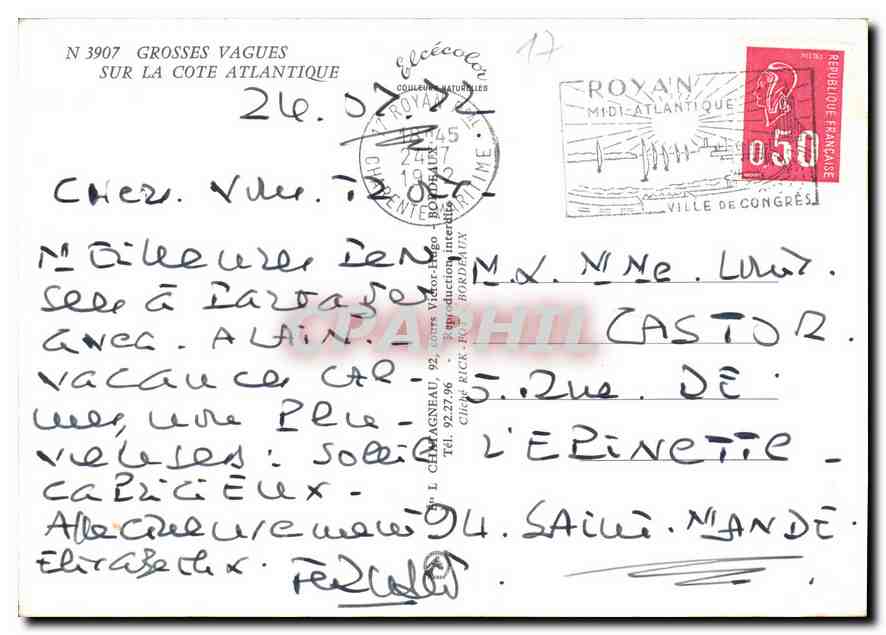 N 3907 GROSSES VAGUES
SUR LA COTE ATLANTIQUE
Elcécolor
COULEURS NATURELLES
17
24.07.72.
17 ROYAN PAL
18H45
24-7
CHARENTE MARITIME
ROYAN
MIDI-ATLANTIQUE
VILLE DE CONGRÈS
POSTES
RÉPUBLIQUE FRANÇAISE
0,50
Meilleures Pen-
sées à Partager
avec. ALAIN.
Vacances CAL-
mes, non Plu-
vieuses: Soleil
CAPRICIEUX.
Affectueusement
Elisabeth.
M. & Mme. Louis.
CASTOR.
5. Rue. DE
L'EPINETTE
94. SAINT. MANDÉ.
L. CHATAGNEAU, 92, cours Victor-Hugo - BORDEAUX
Tél. 92.27.96 - Reproduction interdite
Cliché RICK-FOT - BORDEAUX
CPAPHIL